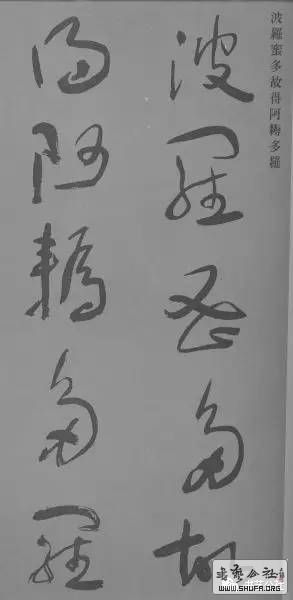 波羅蜜多故得阿耨多羅
波羅蜜多故
得阿耨多羅
书艺公社
WWW.SHUFA.ORG